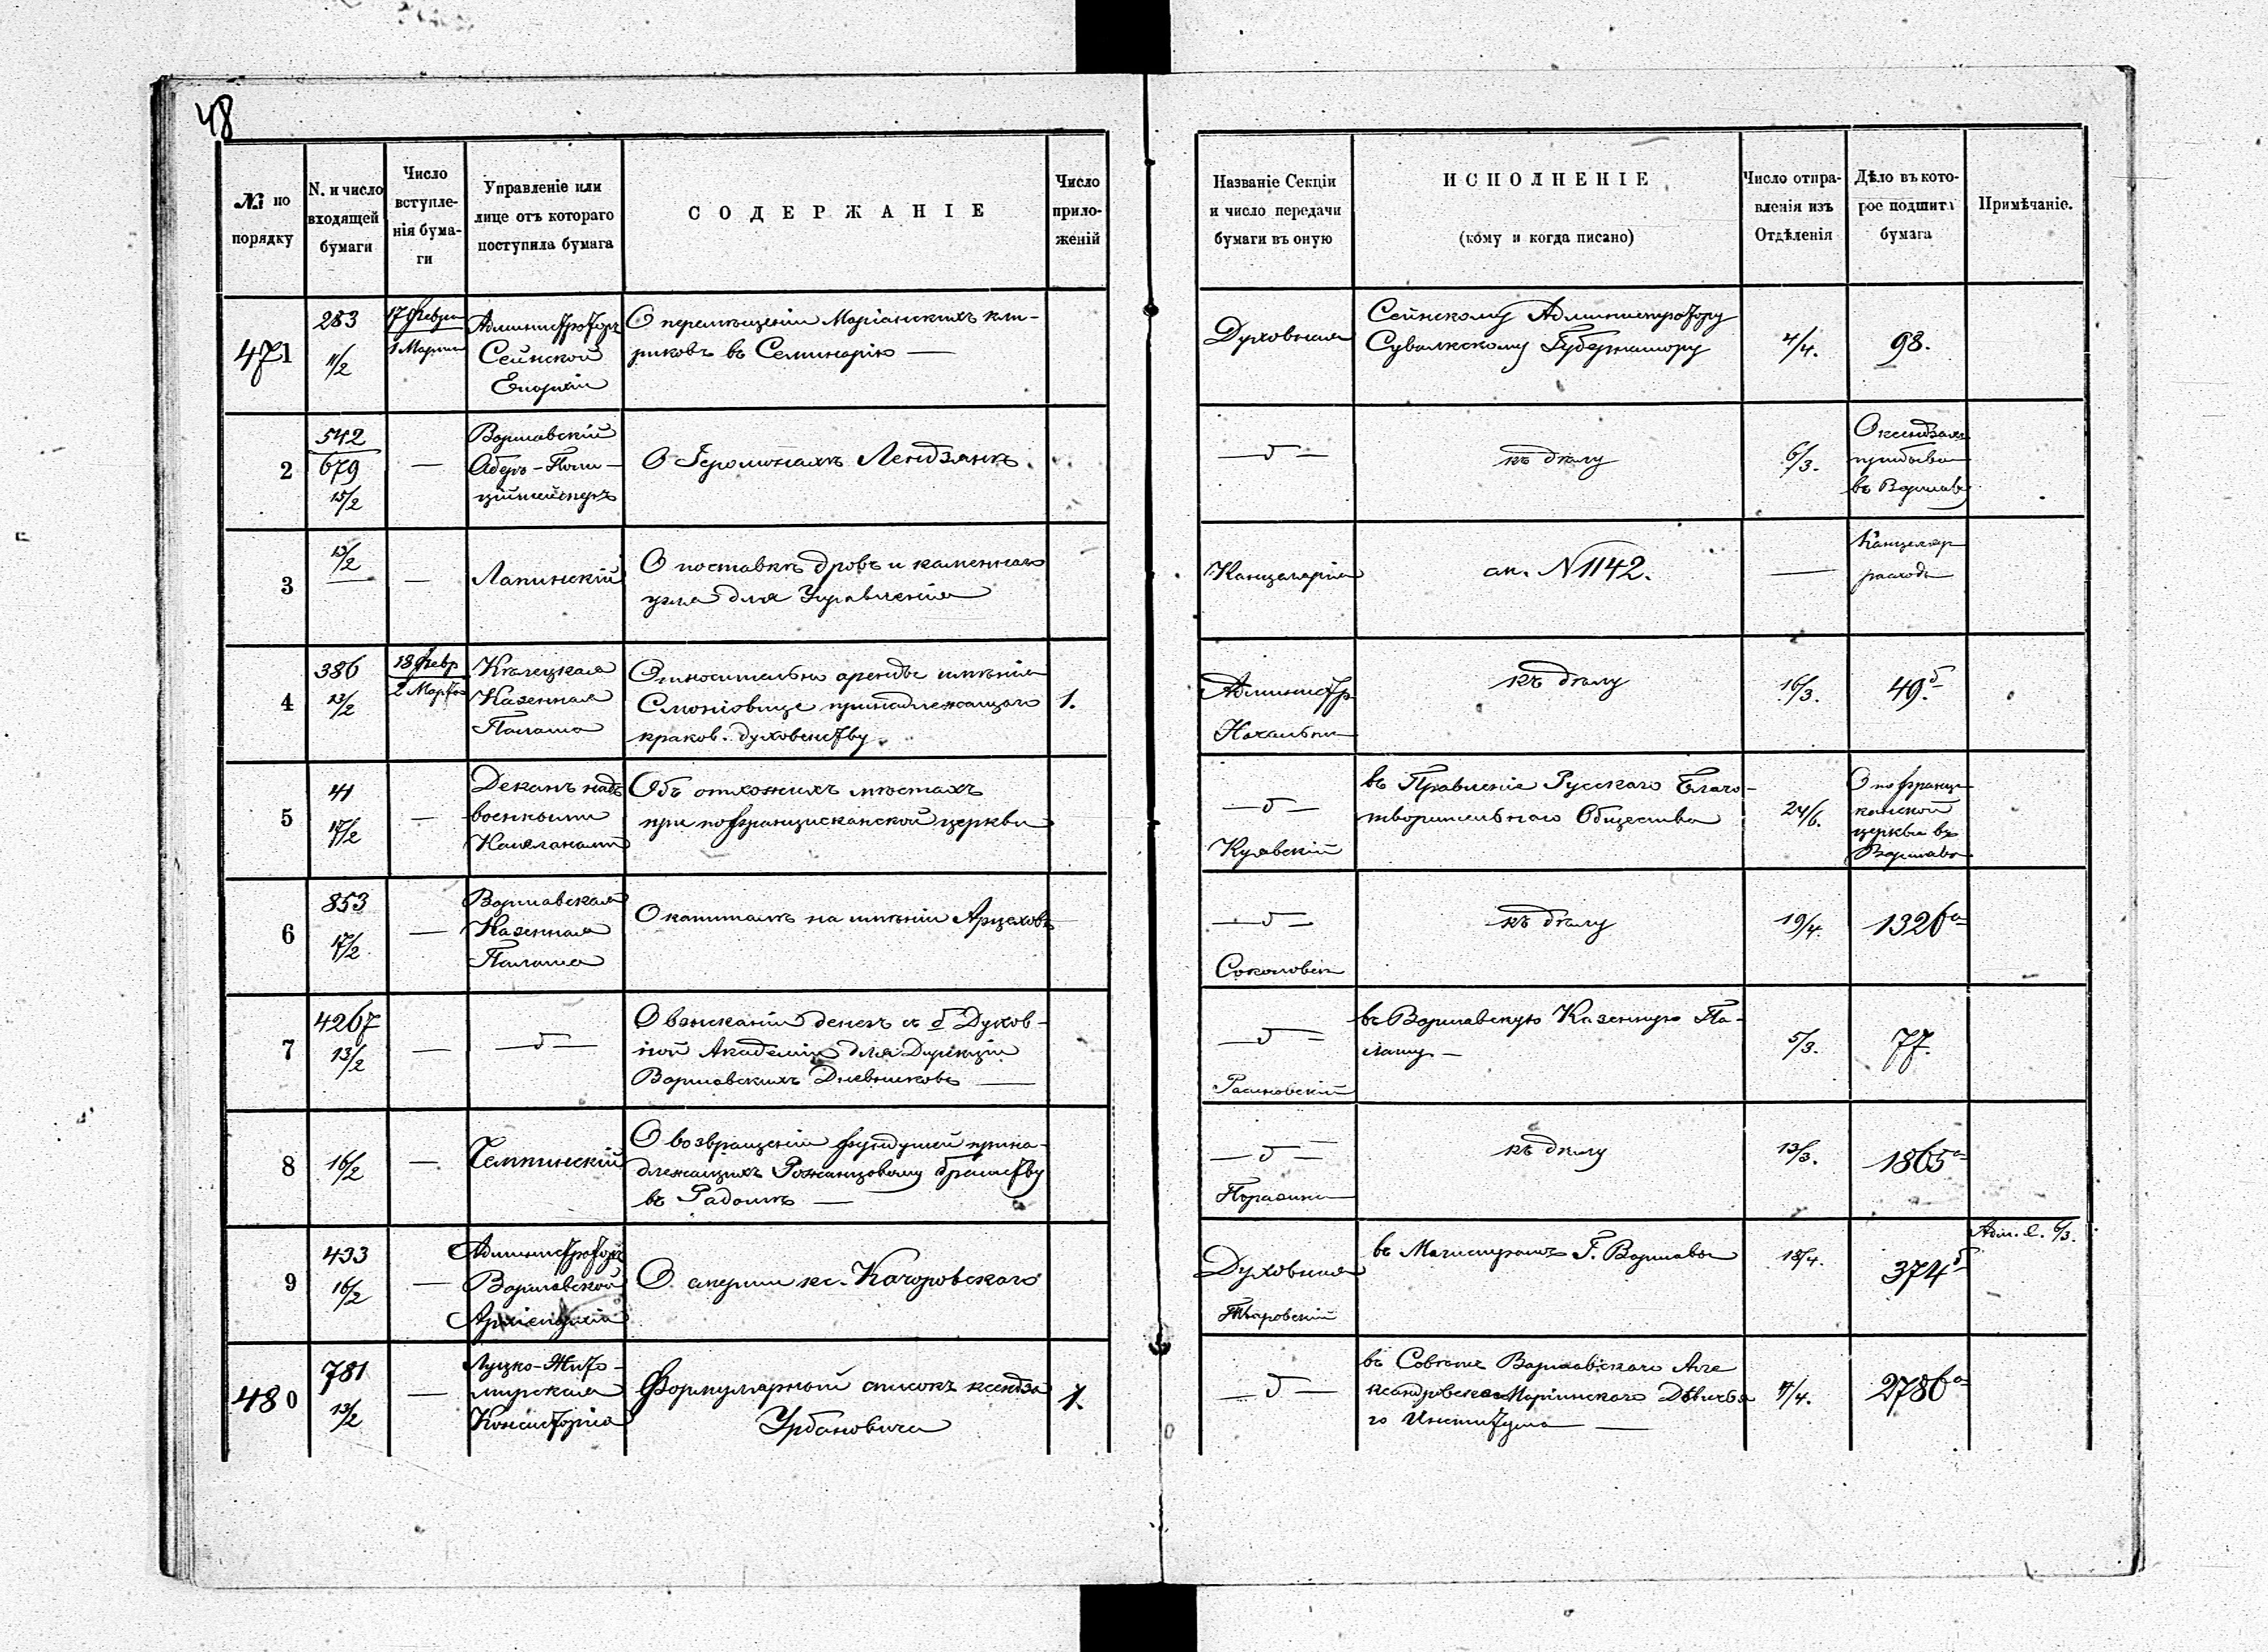 48
№ по порядку
N. и число входящей бумаги
Число вступленія бумаги
Управленіе или лице отъ котораго поступила бумага
СОДЕРЖАНІЕ
Число приложеній
Названіе Секціи и число передачи бумаги въ оную
ИСПОЛНЕНІЕ
(кому и когда писано)
Число отправленія изъ Отдѣленія
Дѣло въ которое подшита бумага
Примѣчаніе.
471
283
11/2
17 Февра
1 Марта
Администраторъ
Сейнской
Епархіи
О перемѣщеніи Маріанскихъ кли-
риковъ въ Семинарію —
Духовная
Сейнскому Администратору
Сувалкскому Губернатору
4/4.
98.
2
542
679
15/2
—
Варшавскій
Оберъ-Поли-
ціймейстеръ
О Іеромонахѣ Лендзянѣ.
— д —
къ дѣлу
6/3.
О ксендзахъ
въ Варшавѣ
3
13/2
—
Лапинскій
О поставкѣ дровъ и каменнаго
угля для Управленія
Канцелярія
см. N 1142.
—
Канцеляр
расходы
4
386
13/2
18 Февр
2 Марта
Кѣлецкая
Казенная
Палата
Относительно аренды имѣнія
принадлежащаго
краков. духовенству
1.
Администр
къ дѣлу
16/3.
49.б
5
41
17/2
—
Деканъ надъ
военными
Капеланами
Объ отхожихъ мѣстахъ
при пофранцисканской церкви
— д —
Куявскій
въ Правленіе Русскаго Благо-
творительнаго Общества
24/6.
О пофранцис
канской
церкви въ
Варшавѣ
6
853
17/2
—
Варшавская
Казенная
Палата
О капиталѣ на имѣніи Арцеховъ
— д —
къ дѣлу
19/4.
1326а
7
4267
13/2
—
— д —
О взысканіи денегъ съ б Духов-
ной Академіи для Дирекціи
Варшавскихъ Дневниковъ —
— д —
въ Варшавскую Казенную Па-
лату —
5/3.
77.
8
16/2
—
О возвращеніи фундушей прина-
длежащихъ Рожанцовому братству
въ Радомѣ —
— д —
къ дѣлу
13/3.
1865а
9
433
16/2
—
Администраторъ
Варшавской
Архіепархіи
О смерти кс. Качоровскаго
Духовная
въ Магистратъ Г. Варшавы
18/4.
374б
480
781
13/2
—
Луцко-Жито-
мирская
Консисторія
Формулярный списокъ ксендза
Урбановича
1.
— д —
въ Совѣтъ Варшавскаго Але
ксандровско Маріинскаго Дѣвичья
го Института —
2786а